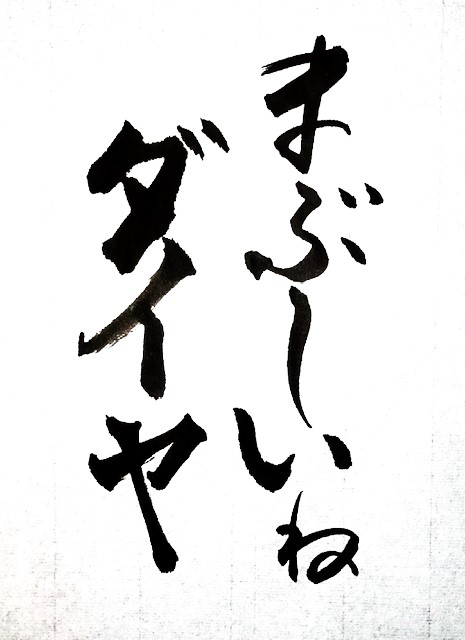 まぶしいね
ダイヤ